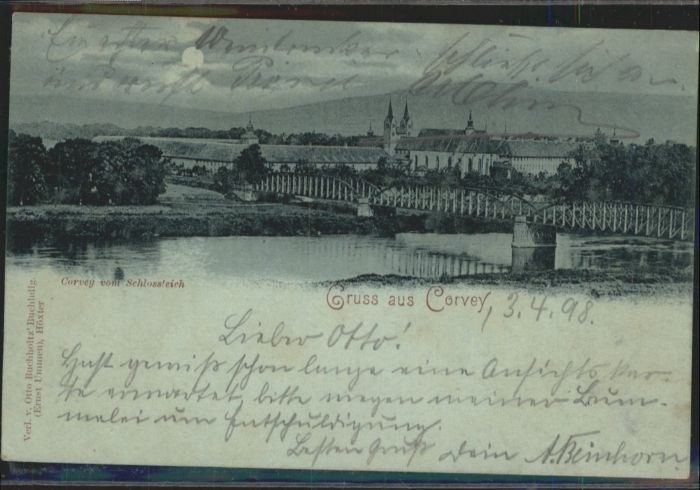 Ein echter schließt sich an
und
Corvey vom Schlossteich
Gruss aus Corvey, 3.4.98.
Verl. v. Otto Buchholtz' Buchhdlg.
(Ernst Ummen), Höxter
Lieber Otto!
Hast gewiß schon lange eine Ansichtskar-
te erwartet, bitte wegen meiner Bum-
melei um Entschuldigung.
Besten Gruß Dein A. Beinhorn